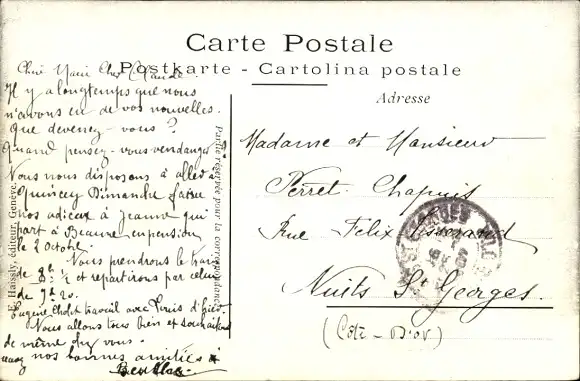 Carte Postale
Postkarte - Cartolina postale
Adresse
Chère Marie Cher Claude
Il y a longtemps que nous
n'avons eu de vos nouvelles.
Que devenez-vous ?
Quand pensez-vous vendanger ?
Nous nous disposons à aller à
Quincey Dimanche faire
nos adieux à Jeanne qui
part à Beaune en pension
le 2 octobre.
Nous prendrons le train
de 8h ½ et repartirons par celui
de 7h 20.
Eugène travail avec
Nous allons tous bien et souhaitons
de même chez vous.
nos bonnes amitiés
Madame et Monsieur
Perret-Chapuis
Rue Felix Tisserand
Nuits St Georges.
(Côte-D'or)
Partie réservée pour la correspondance
E. Haissly, éditeur, Genève.